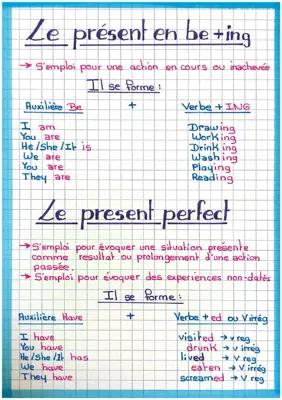 Le présent en be +ing
→ S'emploi pour une action en cours ou inachevée
Il se forme :
Auxilière Be + Verbe + ING
I am Drawing
You are Working
He/She/It is Drinking
We are Washing
You are Playing
They are Reading
Le present perfect
→ S'emploi pour évoquer une situation présente
comme resultat ou prolongement d'une action
passée.
→ S'emploi pour évoquer des experiences non-datés
Il se forme :
Auxilière Have + Verbe +ed ou V irrég
I have visited → v reg
You have drunk → v irrég
He/She/It has lived → v reg
We have eaten → v irrég
They have screamed → v reg